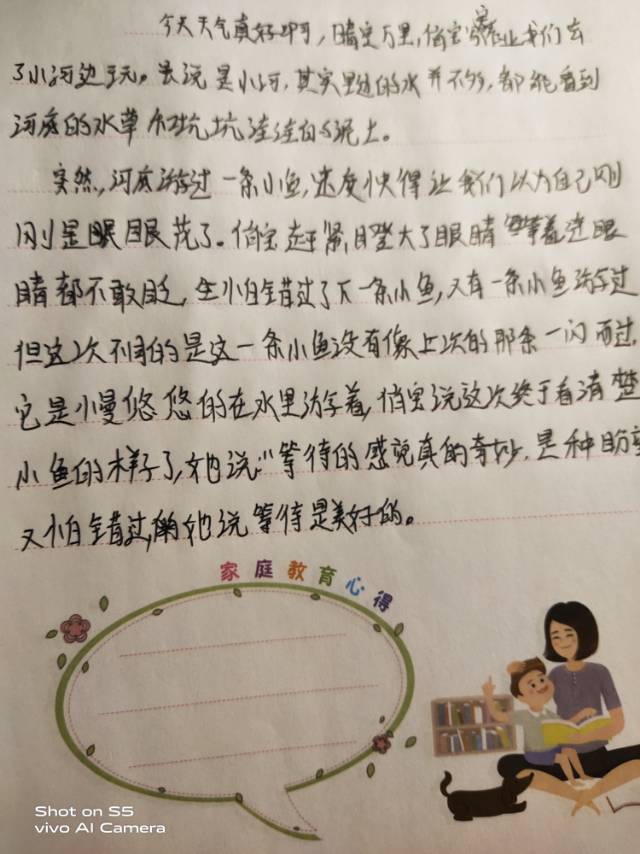 今天天气真好啊，晴空万里，俏宝宝让我们去
了小河边玩。虽说是小河，其实里边的水并不多，都能看到
河底的水草和坑坑洼洼的泥土。
突然，河底游过一条小鱼，速度快得让我们以为自己刚
刚是眼眼花了。俏宝赶紧瞪大了眼睛等着，连眼
睛都不敢眨，生怕错过了下一条小鱼，又有一条小鱼游过
但这次不同的是这一条小鱼没有像上次的那条一闪而过，
它是慢悠悠的在水里游着，俏宝说这次终于看清楚
小鱼的样子了，她说："等待的感觉真的奇妙，是种盼望
又怕错过，她说等待是美好的。
家庭教育心得
Shot on S5
vivo AI Camera